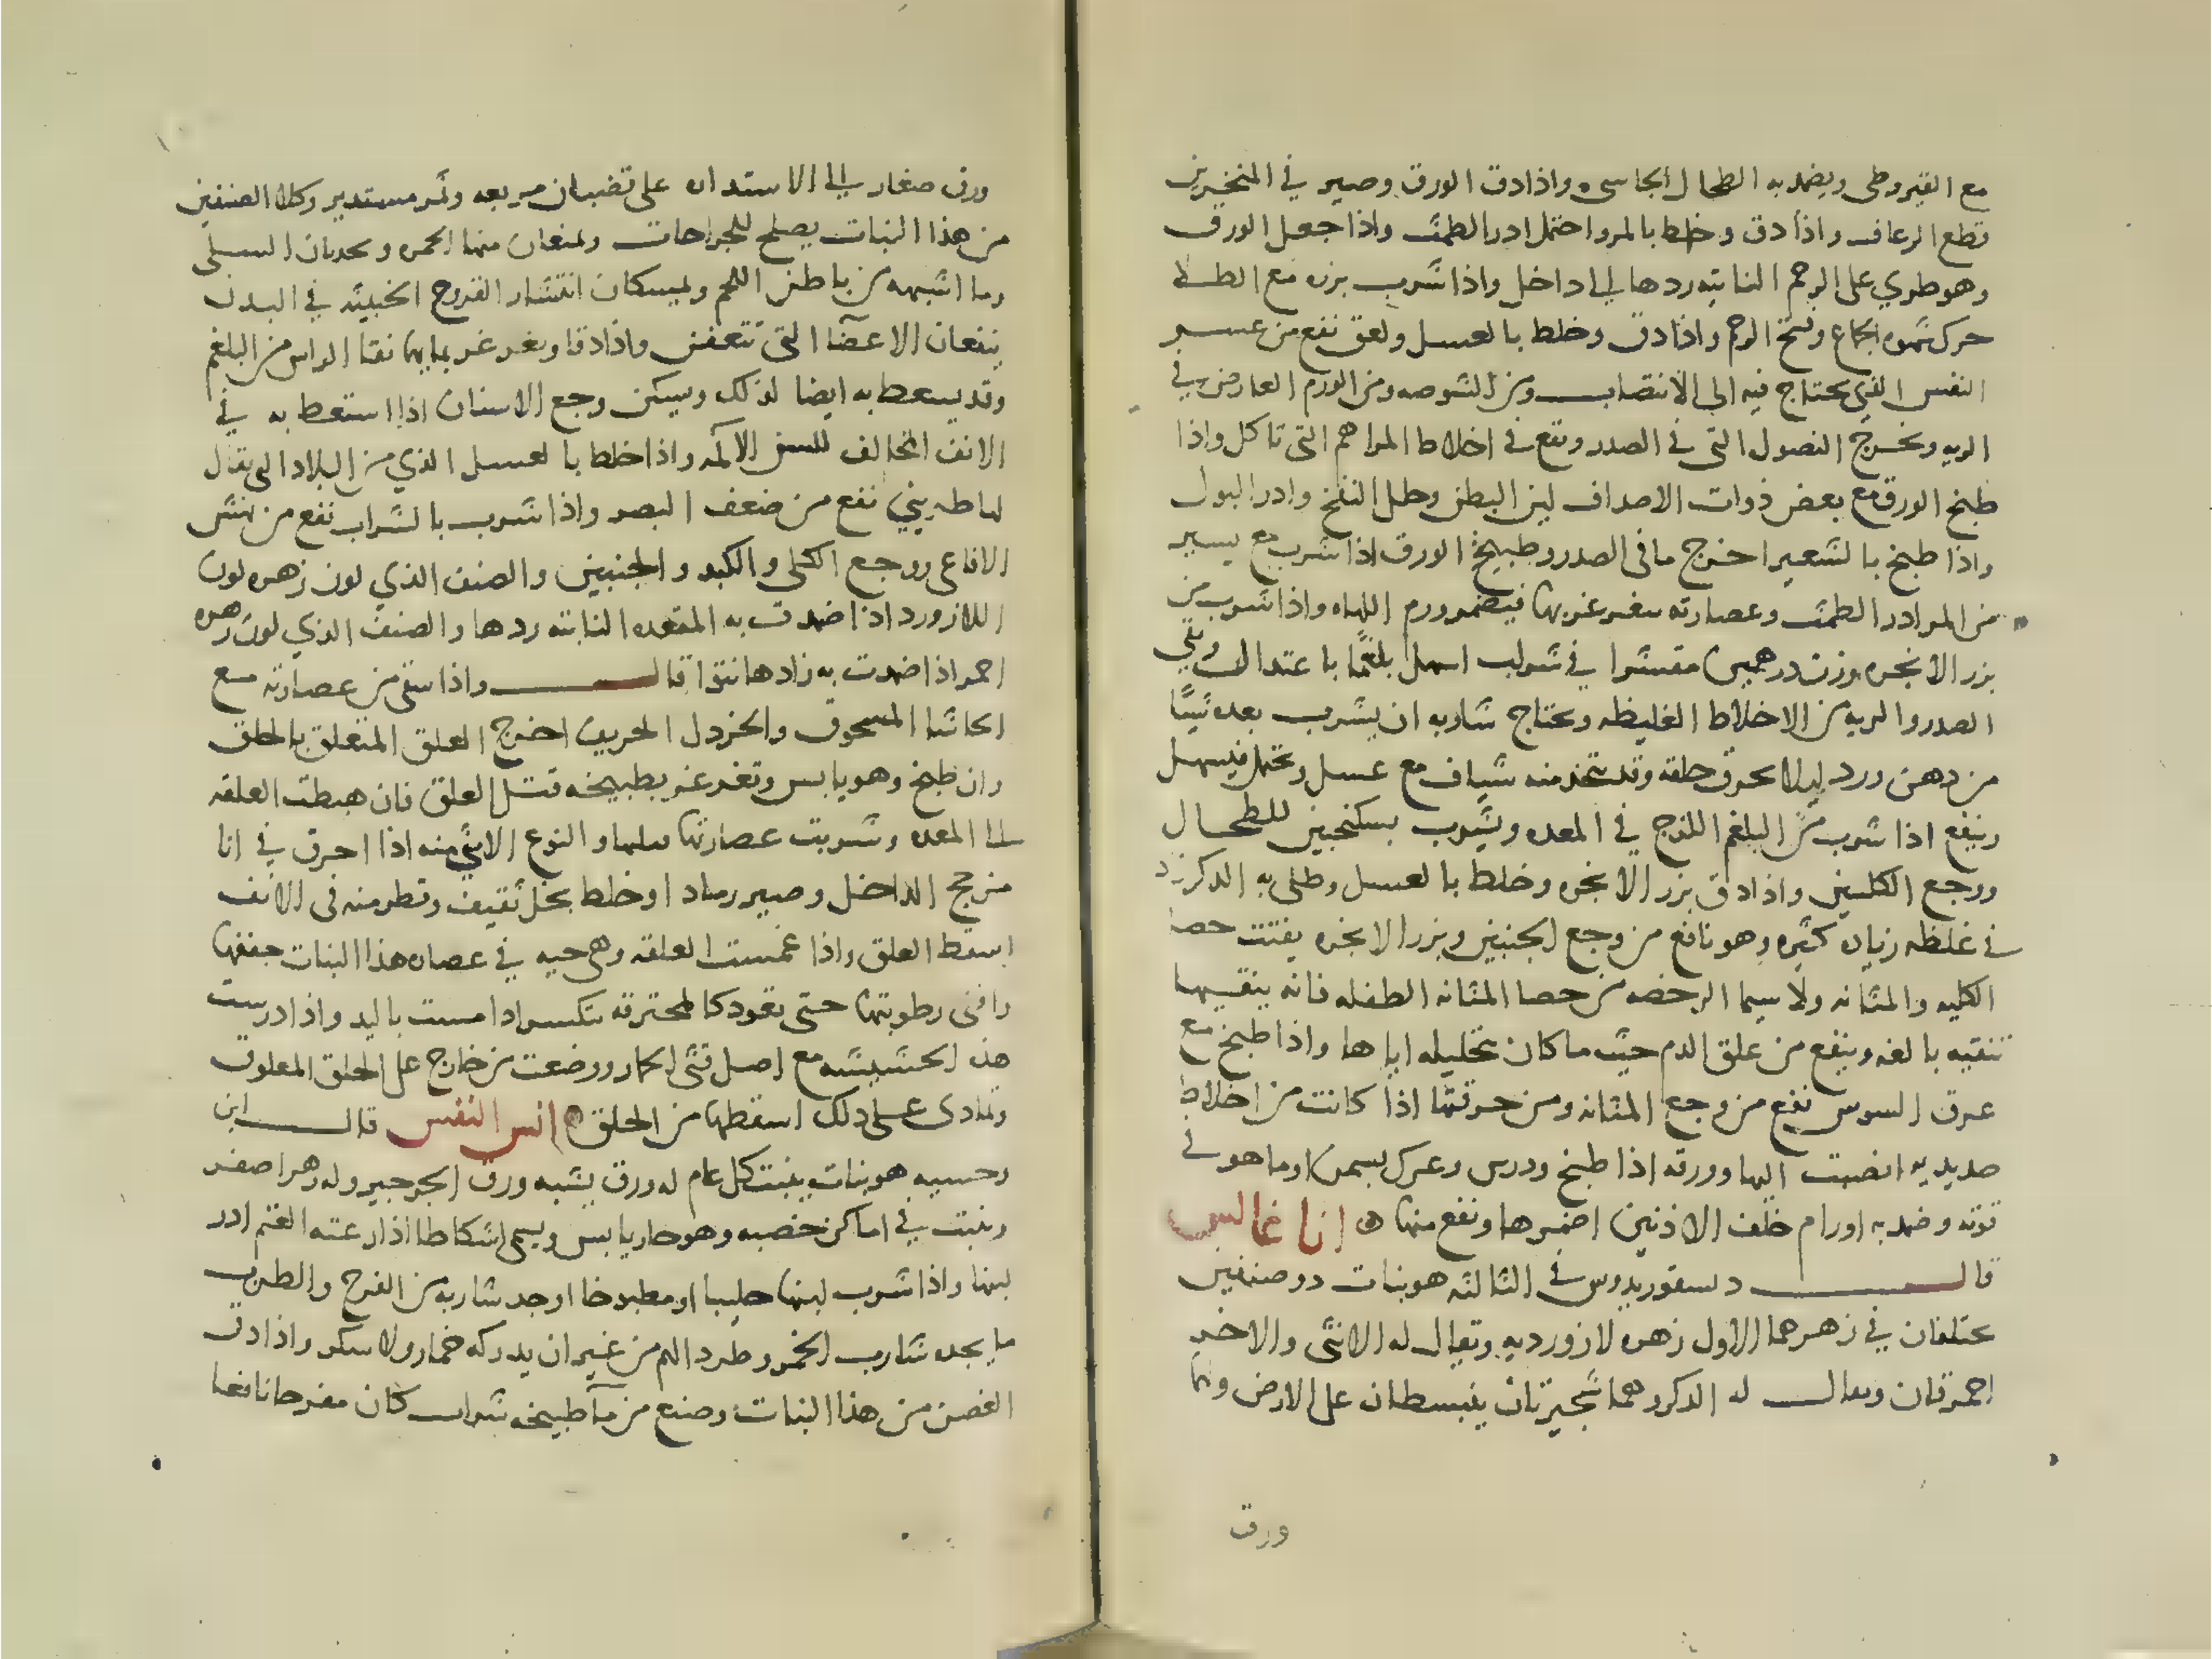 مع القيروطى ويضمد به الطحال الجاسى واذا دق الورق وصير في المنخرين
قطع الرعاف واذا دق وخلط بالمر واحتمل ادر الطمث واذا جعل الورق
وهو طري على الرحم الناتيه ردها الى داخل واذا شرب بزره مع الطلا
حرك شهوه الجماع وفتح الرحم واذا دق وخلط بالعسل ولعق نفع من عسر
النفس الذي يحتاج فيه الى الانتصاب ومن الشوصه ومن الورم العارض في
الريه ويخرج الفصول التى في الصدر ويقع في اخلاط المراهم التى تاكل واذا
طبخ الورق مع بعض ذوات الاصداف لين البطن وحلل النفخ وادر البول
واذا طبخ بالشعير اخرج ما في الصدر وطبيخ الورق اذا شرب مع يسير
من المر ادر الطمث وعصارته يتغرغر بها فيضمر ورم اللهاه واذا شرب من
بزر الانجره وزن درهمين مقشرا في شراب اسهل بلغما باعتدال وينقي
الصدر والريه من الاخلاط الغليظه ويحتاج شاربه ان يشرب بعده شيئا
من دهن ورد ليلا يحرق حلقه وقد يتخذ منه شياف مع عسل ويحتمل فيسهل
وينفع اذا شرب من البلغم اللزج في المعده ويشرب بسكنجبين للطحال
ووجع الكليتين واذا دق بزر الانجره وخلط بالعسل وطلى به الذكر زاد
في غلظه زياده كثيره وهو نافع من وجع الجنبين وبزر الانجره يفتت حصا
الكليه والمثانه ولا سيما الرخصه من حصا المثانه الطفله فانه ينقيها
تنقيه بالغه وينفع من علق الدم حيث ما كان بتحليله اياها واذا طبخ مع
عرق السوس نفع من وجع المثانه ومن حرقتها اذا كانت من اخلاط
صديديه انصبت اليها وورقه اذا طبخ ودرس وعرك بسمن او ما هو في
قوته وضمد به اورام خلف الاذنين اضمرها ونفع منها انا غالس
قال دسقوريدوس في الثالثه هو نبات دو صنفين
مختلفان في زهرهما الاول زهره لازورديه ويقال له الانثى والاخر
احمر قان ويقال له الدكر وهما شجيرتان ينبسطان على الارض ولهما
ورق
ورق صغار الى الاستداره على قضبان مربعه وثمر مستدير وكلا الصنفين
من هذا النبات يصلح للجراحات ويمنعان منها الحمره ويجذبان السلى
وما اشبهه من باطن اللحم ويمسكان انتشار القروح الخبيثه في البدن
ينفعان الاعضا التى تتعفن واذا دقا وتغرغر بمايهما نقيا الراس من البلغم
وقد يسعط به ايضا لذلك ويسكن وجع الاسنان اذا استعط به في
الانف المخالف للسن الالمه واذا خلط بالعسل الذي من البلاد التى يقال
لها طريني نفع من ضعف البصر واذا شرب بالشراب نفع من نهش
الافاعى ووجع الكلى والكبد والجنبين والصنف الذي لون زهره لون
اللازورد اذا ضمدت به المقعده الناتئه ردها والصنف الذي لون زهره
احمر اذا ضمدت به زادها نتوا قال واذا سقى من عصارته مع
الحاشا المسحوق والخردل الحريف اخرج العلق المتعلق بالحلق
وان طبخ وهو يابس وتغرغر بطبيخه قتل العلق فان هبطت العلقه
الى المعده وشربت عصارتها قتلها والنوع الانثى منه اذا احرق في انا
مزجج الداخل وصير رمادا وخلط بخل ثقيف وقطر منه في الانف
اسقط العلق واذا غمست العلقه وهى حيه في عصاره هذا النبات جففها
وافنى رطوبتها حتى تعود كالمحترقه تتكسر ادا مست باليد واذا درست
هذه الحشيشه مع اصل قثى الحمار ووضعت من خارج على الحلق المعلوق
وتمادى على دلك اسقطها من الحلق انس النفس قال ابن
وحسيه هو نبات ينبت كل عام له ورق يشبه ورق الجرجير وله زهر اصفر
وينبت في اماكن خصبه وهو حار يابس ويسمى اشكاطا اذا رعته الغنم ادر
لبنها واذا شرب لبنها حليبا او مطبوخا اوجد شاربه من الفرح والطرب
ما يجده شارب الخمر وطرد الهم من غير ان يدركه خمار ولا سكر واذا دق
الغصن من هذا النبات وصنع من ما طبيخه شراب كان مفرحا نافعا